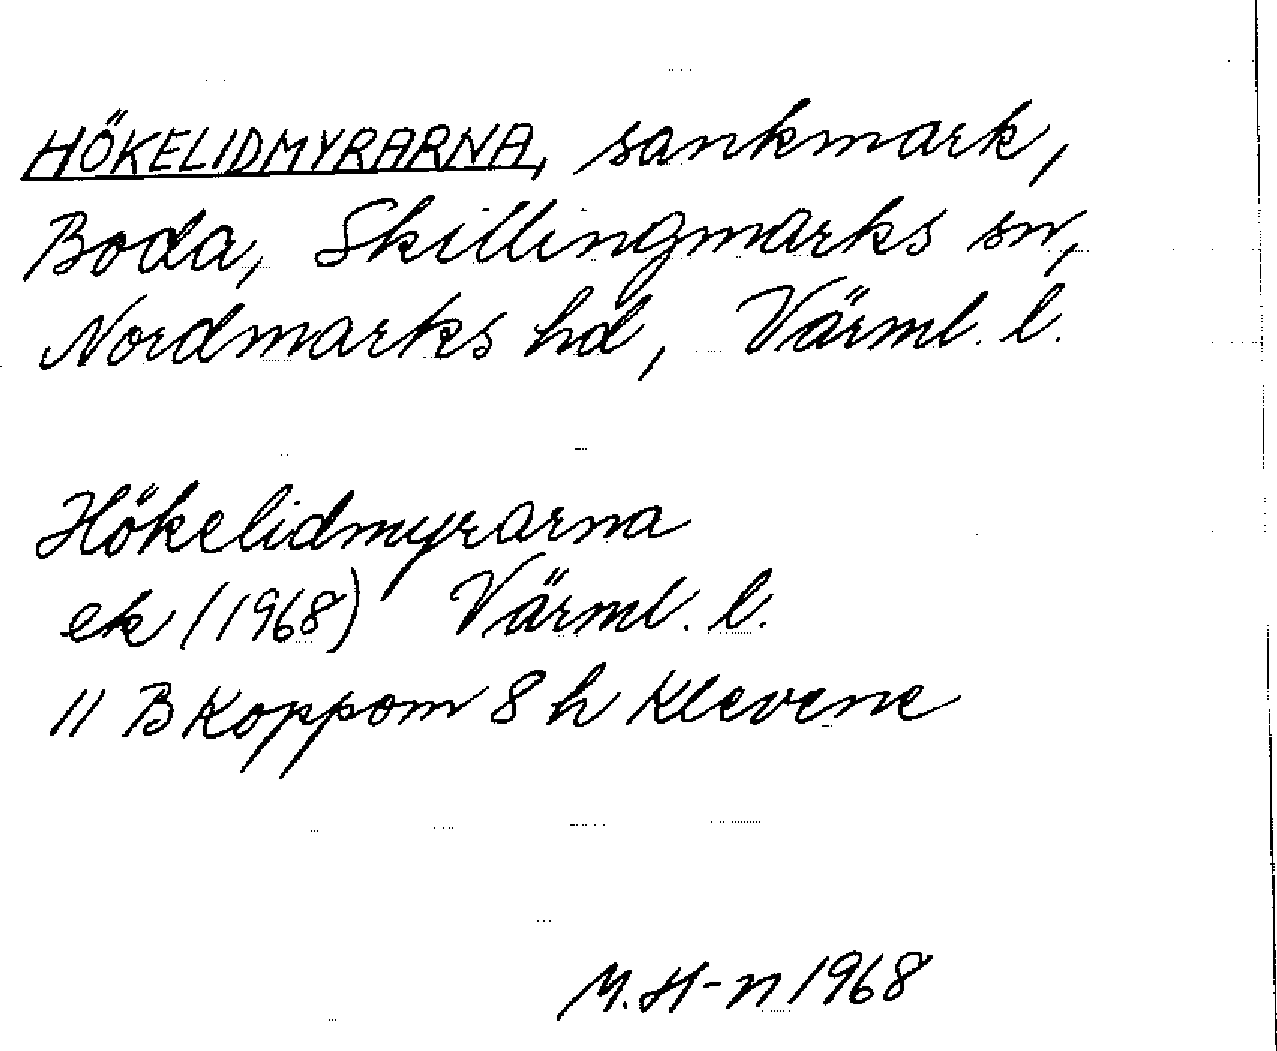 HÖKELIDMYRARNA, sankmark,
Boda, Skillingmarks sn,
Nordmarks hd, Värml. l.
Hökelidmyrarna
ek (1968) Värml. l.
11 B Koppom 8 h Klevene
M. H-n 1968